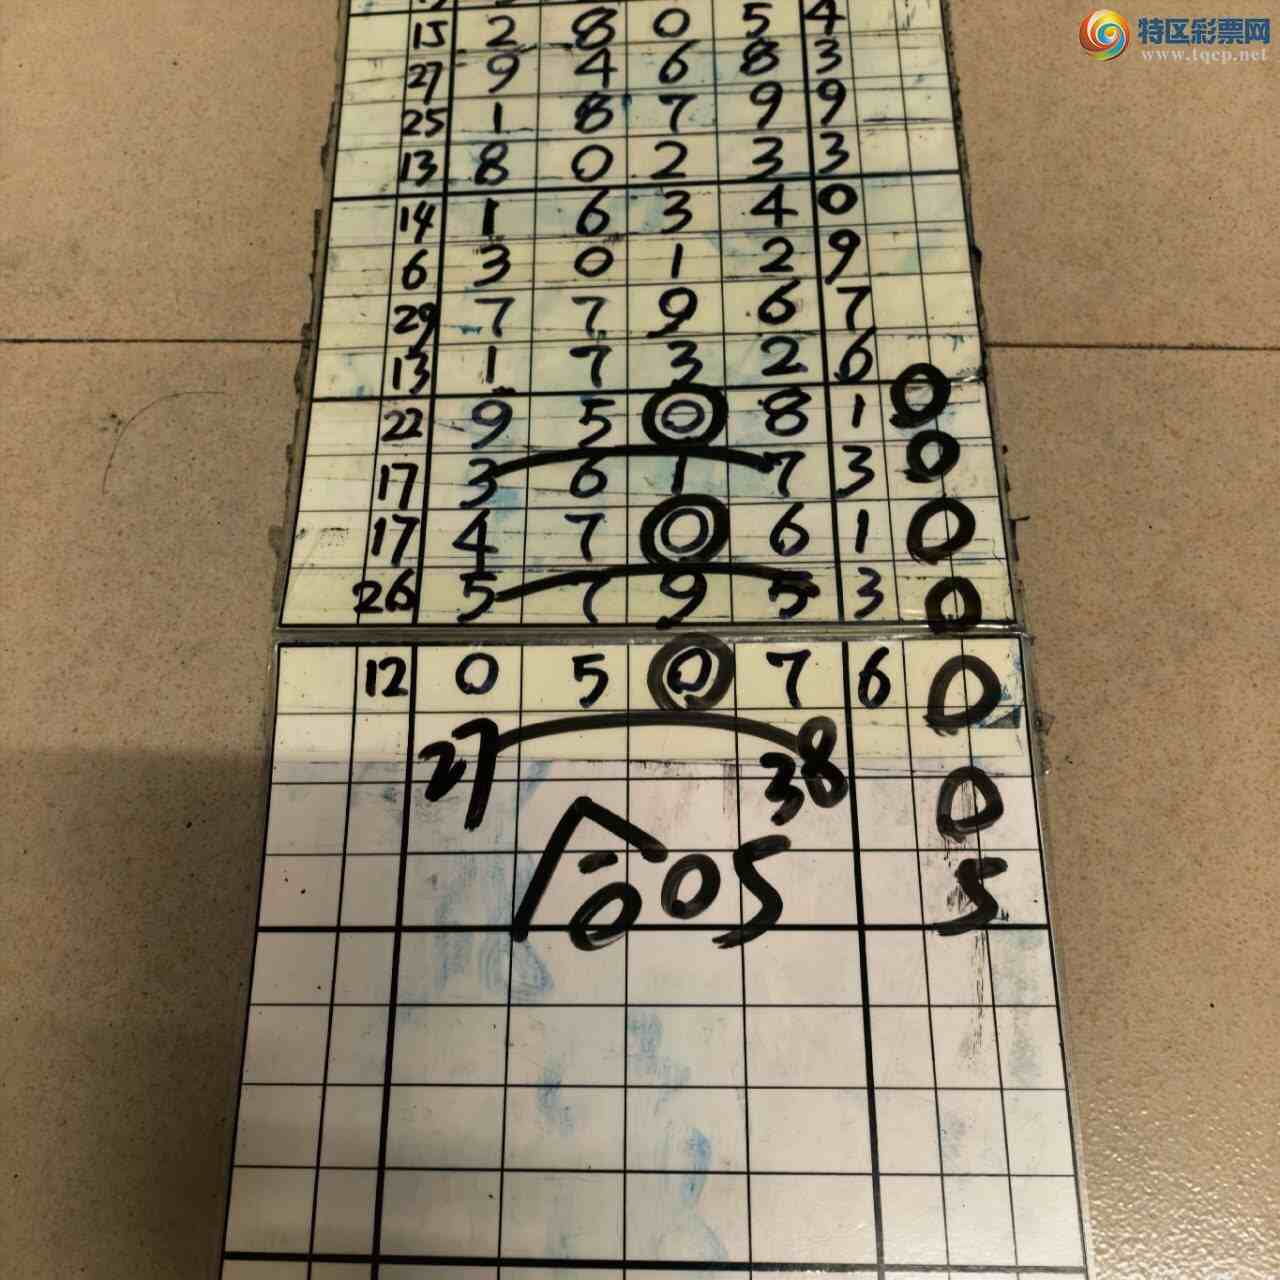 特区彩票网
www.tqcp.net
15 2 8 0 5 4
27 9 4 6 8 3
25 1 8 7 9 9
13 8 0 2 3 3
14 1 6 3 4 0
6 3 0 1 2 9
29 7 7 9 6 7
13 1 7 3 2 6
22 9 5 0 8 1 0
17 3 6 1 7 3 0
17 4 7 0 6 1 0
26 5 7 9 5 3 0
12 0 5 0 7 6 0
27 38 0
005 5